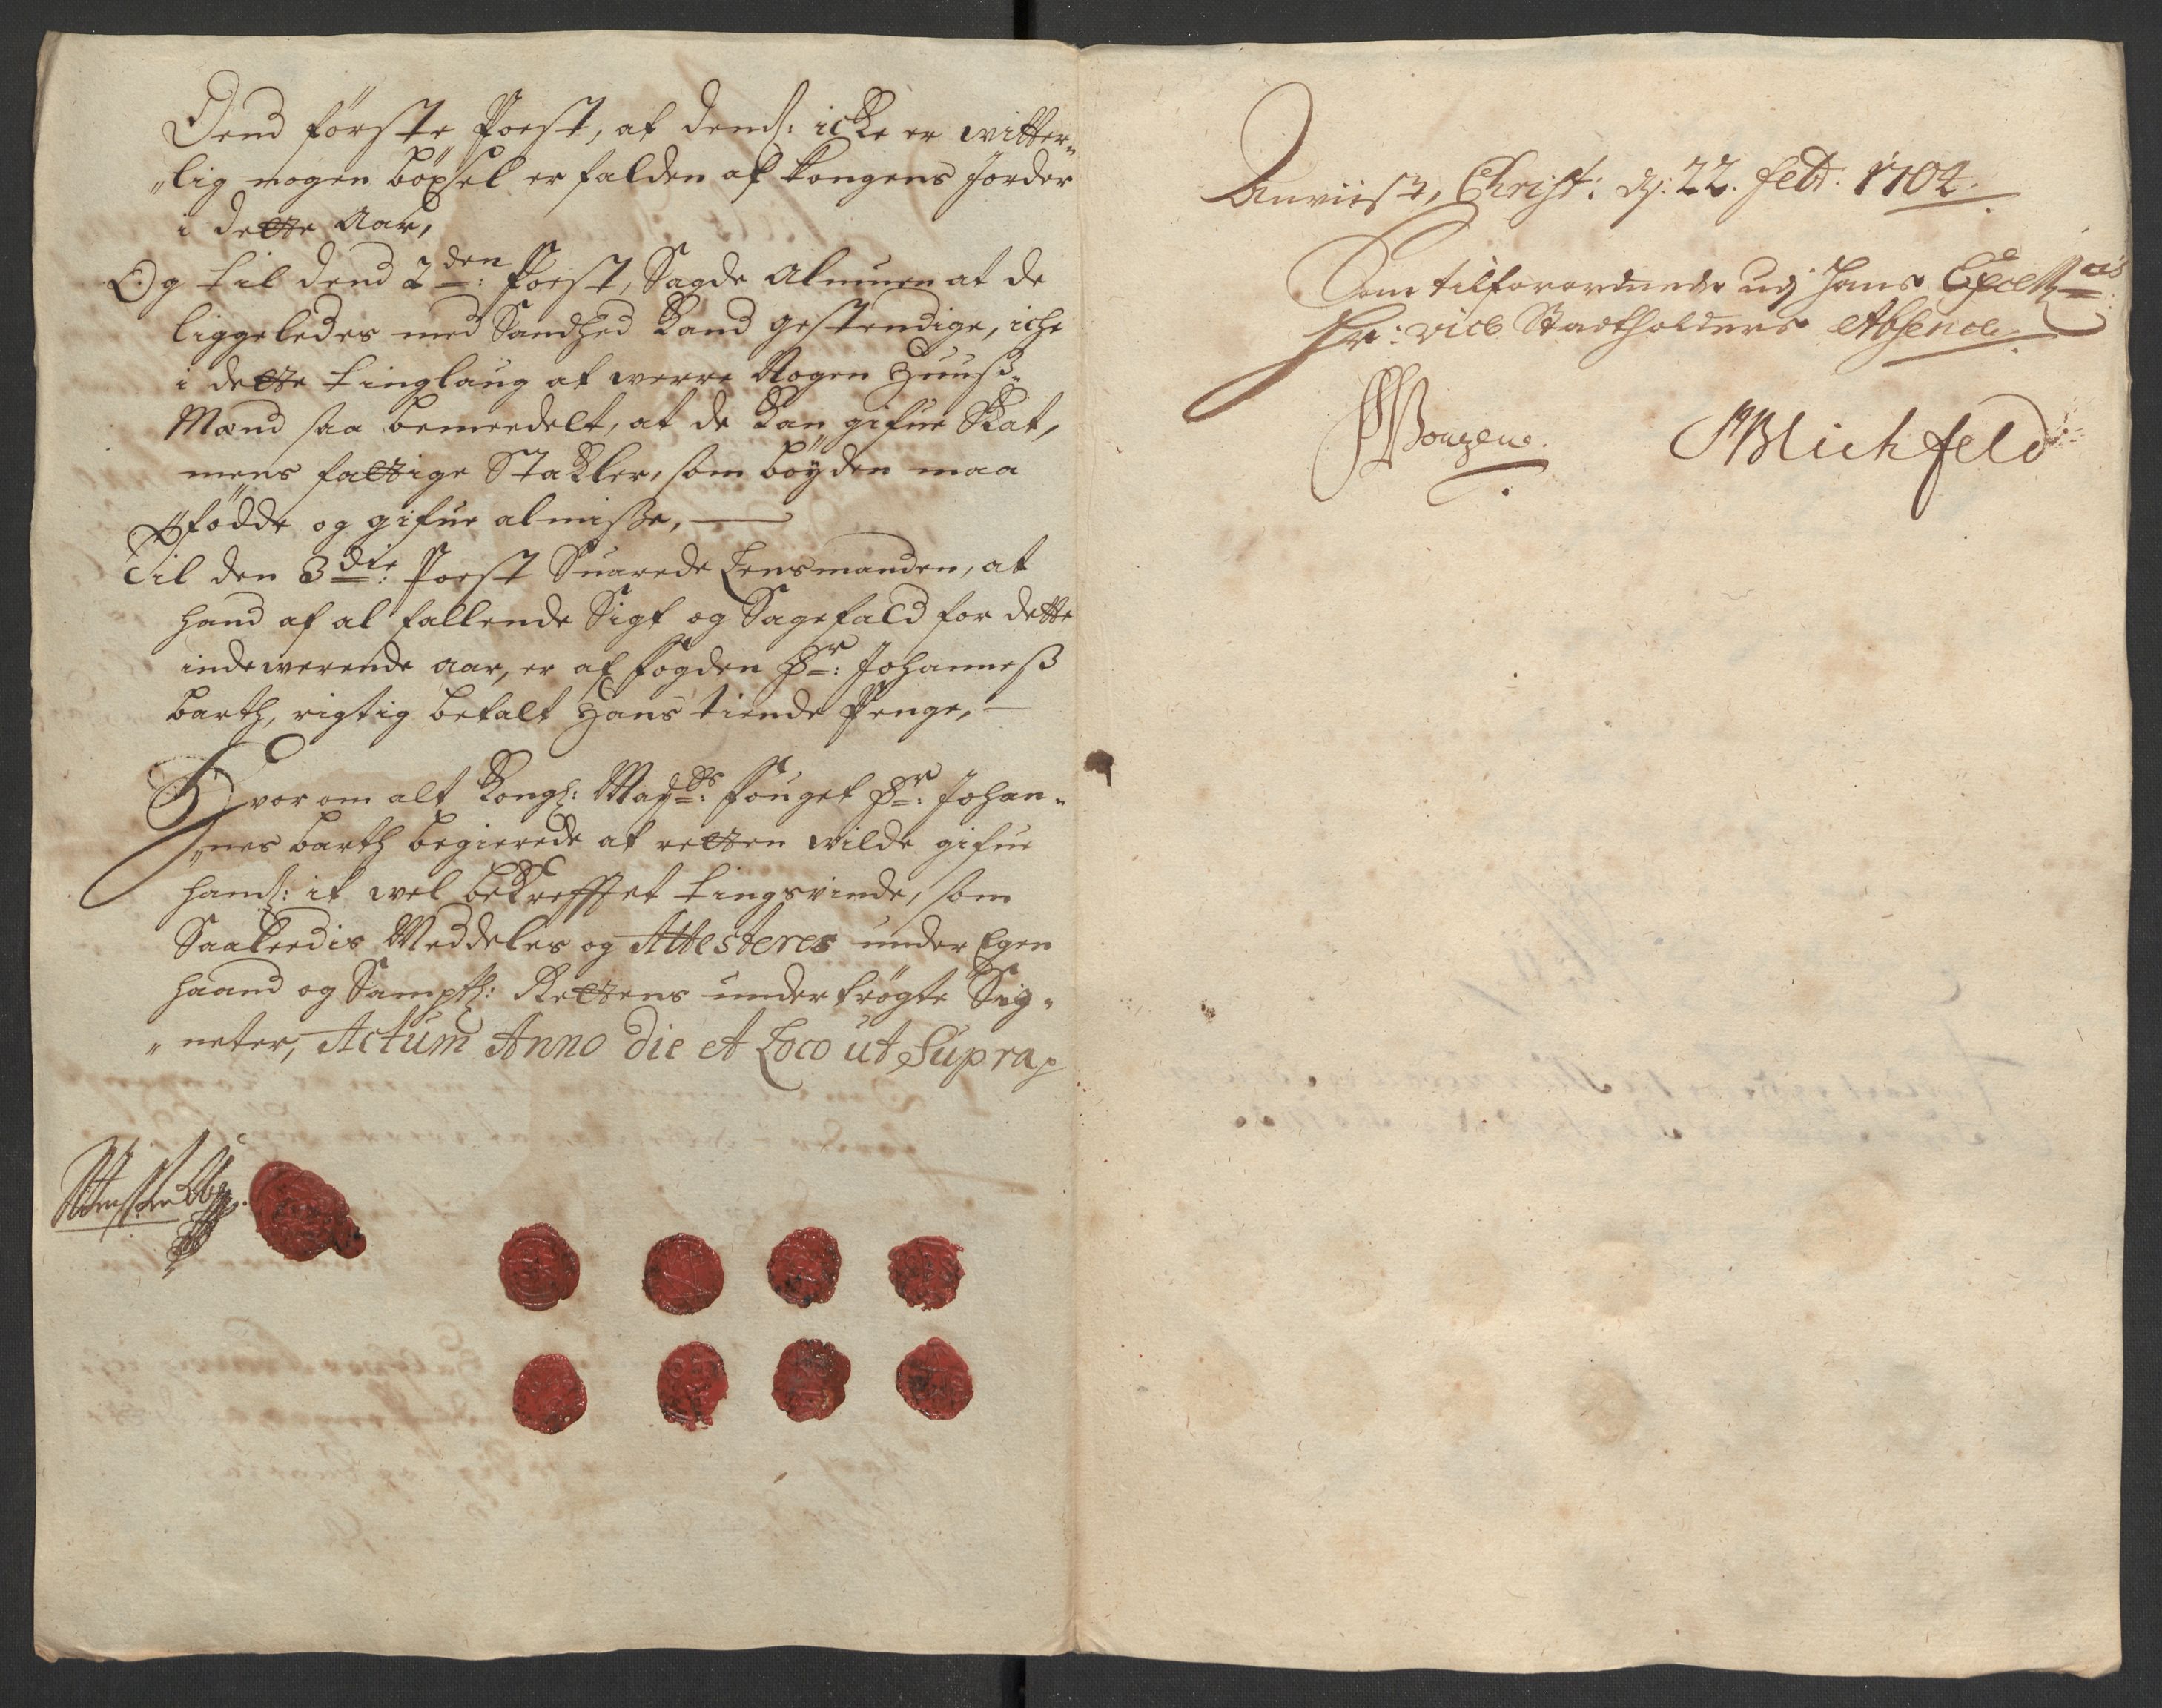 Dend förste Post, at dend: icke er witter-
"lig nogen böxsel er falden af kongens Jorder
i dette Aar,
Og til dend 2den: Post, Sagde Almuen at de
liggeledes med Sandhed Kand gestendige, iche
i dette tinglaug at werre Nogen Huuß-
Mænd saa bemeedelt, at de kan gifue Skat,
mens fattige Stakler, som böyden maa
födde og gifue almisse,
Til den 3die: Post Suarede Lensmanden, at
hand af al fallende Sigt og Sagefald for dette
indewerende aar, er af fogden Hr: Johanneß
barth, rigtig betalt Hans tiende Penge,
Hvor om alt Kongl: Mayts: fouget Hr: Johan-
"nes barth begierede at retten wilde gifue
hand: it wel bekrefftet tingsvinde, som
Saaledis Meddeles og Attesteres under Egen
haand og Samptl: Rettens undertrögte Sig-
"neter, Actum Anno die et Loco ut Supra
Anviist, Christ: d: 22. Feb: 1704.
Som tilforordnede udj Hans Excell:cis
Hr: vice Stadtholders Absence.